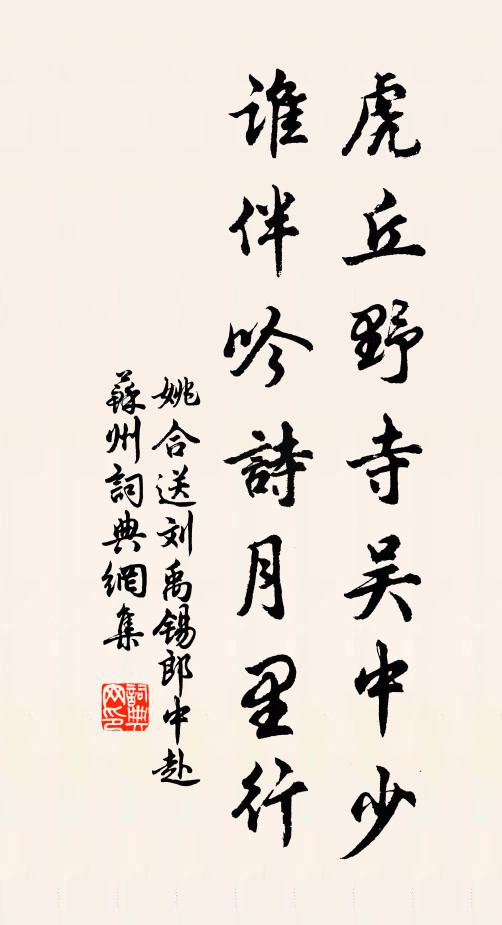 虎丘野寺吴中少
誰伴吟詩月里行
姚合送刘禹锡郎中赴
蘇州詞典網集
詞典
网印